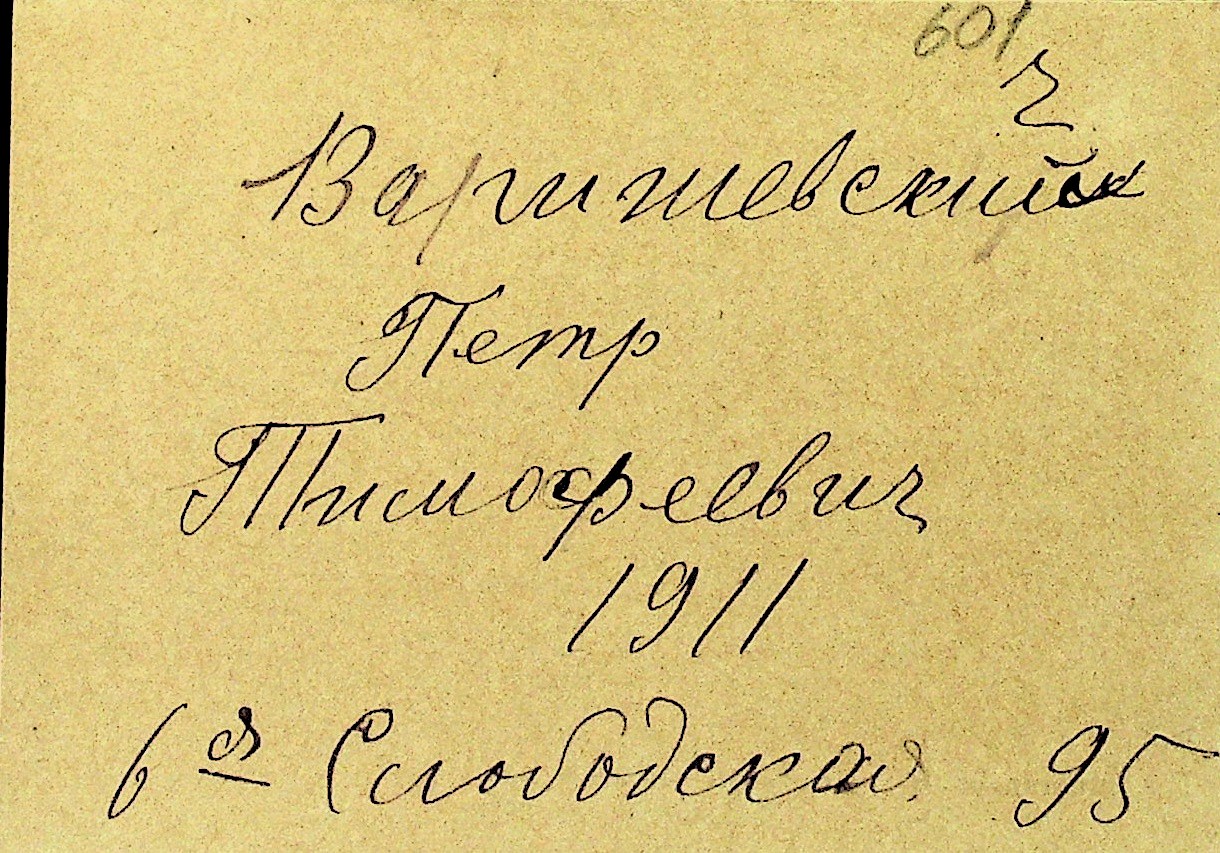 601
ч
Варишевский
Петр
Тимофеевич
1911
6 я Слободская 95